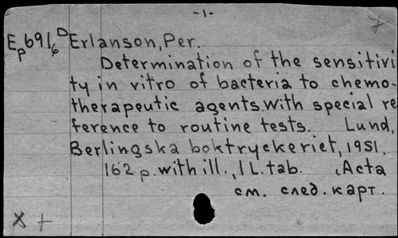 -1-
Ep691/6 D Erlanson, Per.
Determination of the sensitivi
ty in vitro of bacteria to chemo-
therapeutic agents.With special re
ference to routine tests. Lund,
Berlingska boktryckeriet, 1951.
162 p. with ill., 1 L. tab. (Acta
см. след. карт.